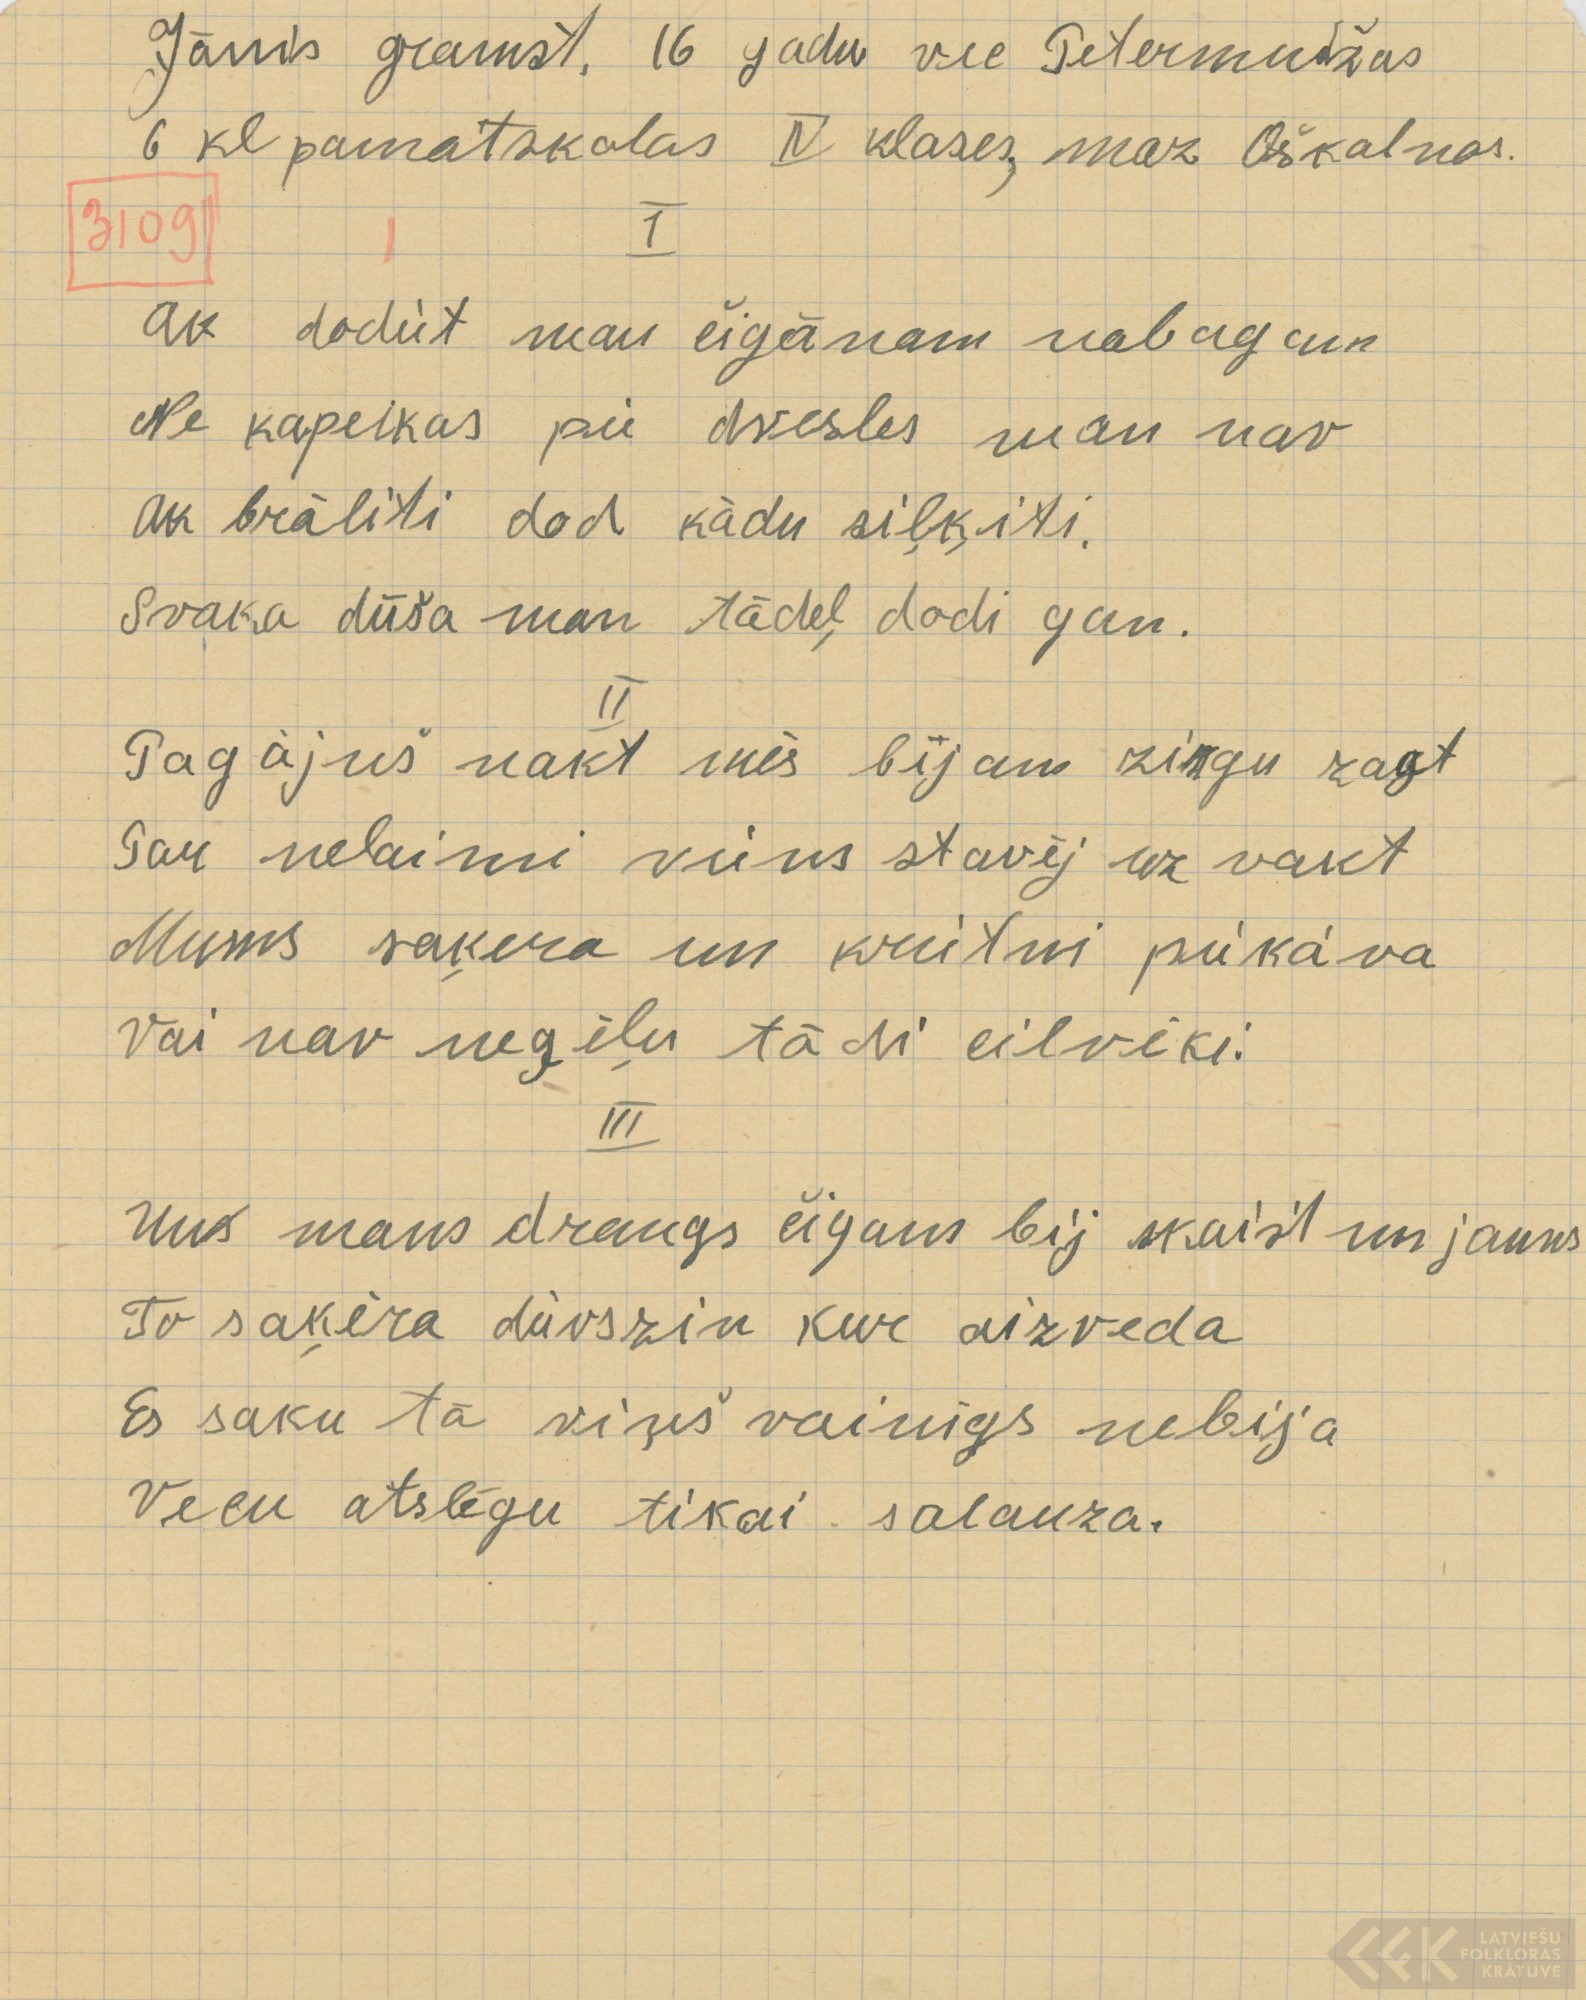 Jānis gramst, 16 gadu vec Petermuižas
6 kl pamatskolas IV klases, maz Oškalnos.
3109 1 I
Ak dodiet man čigānam nabagam
Ne kapeikas pie dvesles man nav
Ak brāliti dod kādu siļķiti.
Svaka dūša man tādeļ dodi gan.
II
Pagājuš nakt mēs bijam zirgu zagt
Par nelaimi viens stavēj uz vakt
Mums saķera un krietni piekáva
Vai nav neģēļu tādi cilvēki.
III
Uns mans draugs čigans bij skaist un jauns
To saķēra dievszin kur aizveda
Es saku tā viņš vainīgs nebija
Vecu atslēgu tikai salauza.
LATVIEŠU
FOLKLORAS
KRĀTUVE